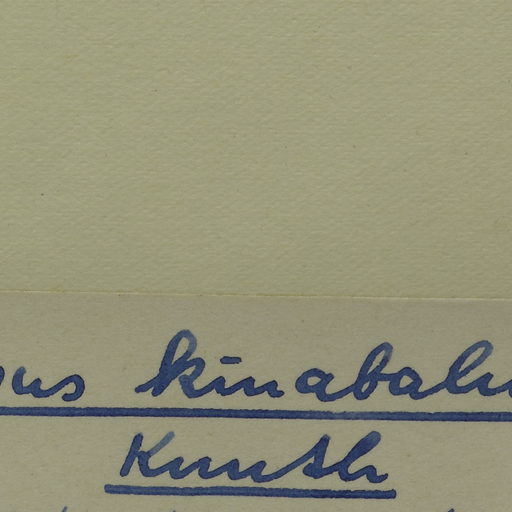 us kinabalu
Knuth